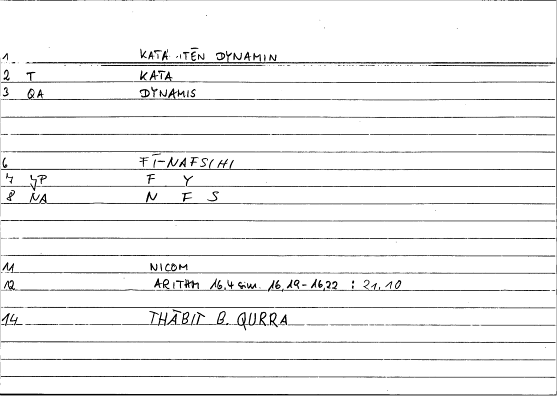 1 KATA TĒN DYNAMIN
2 T KATA
3 QA DYNAMIS
6 FĪ-NAFSIHI
7 YP F Y
8 NA N F S
11 NICOM
12 ARITHM 16,4 sim. 16,19-16,22 : 21,10
14 THĀBIT B. QURRA